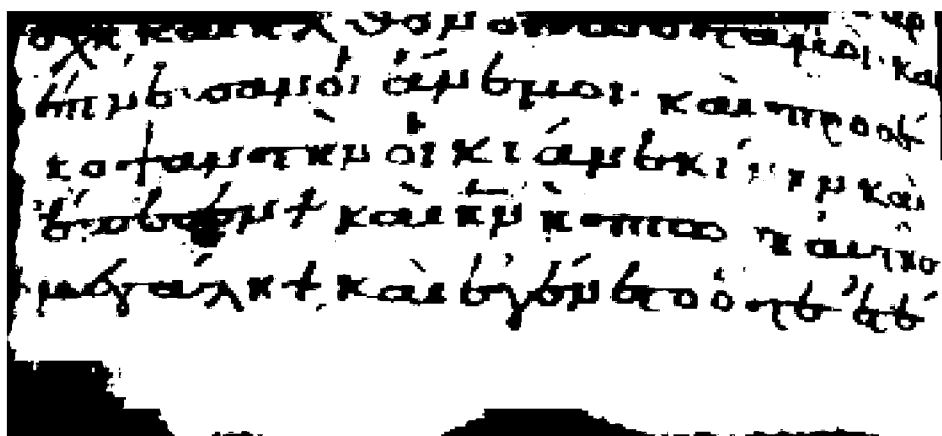 οχὴ καὶ ἦλθον οἱ ποταμοὶ· καὶ
ἔπνευσαν οἱ ἄνεμοι· καὶ προσέ
κοψαν τὴν οἰκίαν ἐκείνην καὶ
ἔπεσεν + καὶ ἦν ἡ πτῶσις αὐτῆς
μεγάλη + καὶ ἐγένετο ὅτε ἐτέ